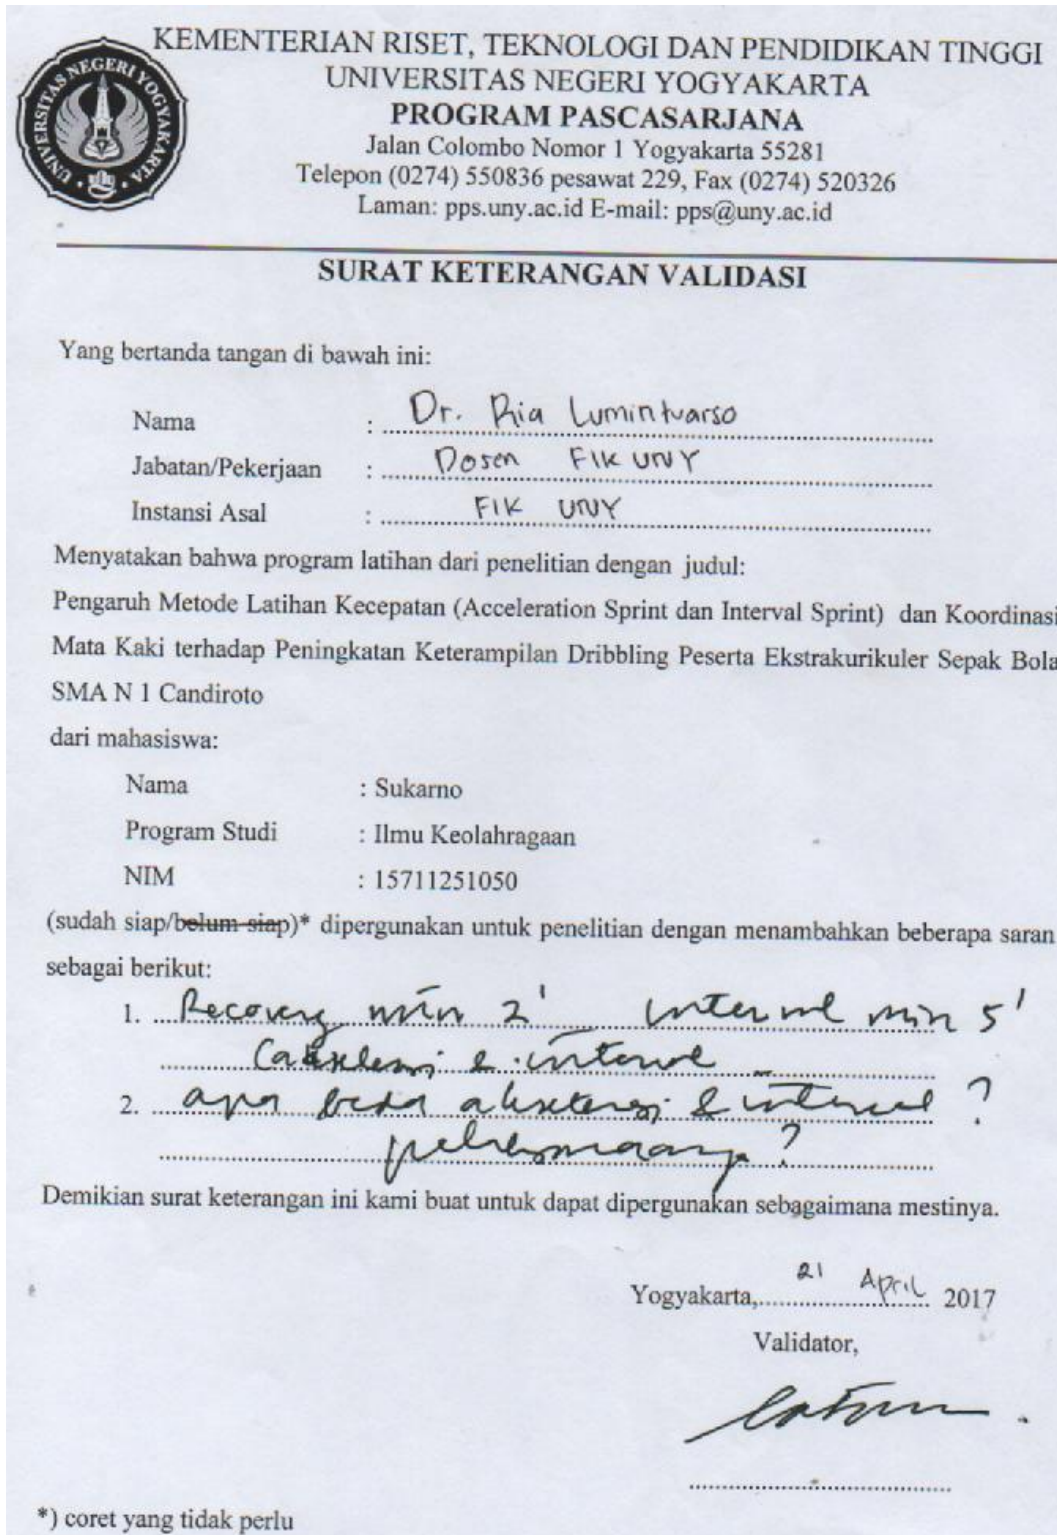 KEMENTERIAN RISET, TEKNOLOGI DAN PENDIDIKAN TINGGI
UNIVERSITAS NEGERI YOGYAKARTA
UNIVERSITAS NEGERI YOGYAKARTA
PROGRAM PASCASARJANA
Jalan Colombo Nomor 1 Yogyakarta 55281
Telepon (0274) 550836 pesawat 229, Fax (0274) 520326
Laman: pps.uny.ac.id E-mail: pps@uny.ac.id
SURAT KETERANGAN VALIDASI
Yang bertanda tangan di bawah ini:
Nama : Dr. Ria Lumintuarso
Jabatan/Pekerjaan : Dosen FIK UNY
Instansi Asal : FIK UNY
Menyatakan bahwa program latihan dari penelitian dengan judul:
Pengaruh Metode Latihan Kecepatan (Acceleration Sprint dan Interval Sprint) dan Koordinasi
Mata Kaki terhadap Peningkatan Keterampilan Dribbling Peserta Ekstrakurikuler Sepak Bola
SMA N 1 Candiroto
dari mahasiswa:
Nama : Sukarno
Program Studi : Ilmu Keolahragaan
NIM : 15711251050
(sudah siap/belum siap)* dipergunakan untuk penelitian dengan menambahkan beberapa saran
sebagai berikut:
1. Recovery min 2' interval min 5'
& interval
2. apa beda akselerasi & interval ?
?
Demikian surat keterangan ini kami buat untuk dapat dipergunakan sebagaimana mestinya.
Yogyakarta, 21 April 2017
Validator,
*) coret yang tidak perlu